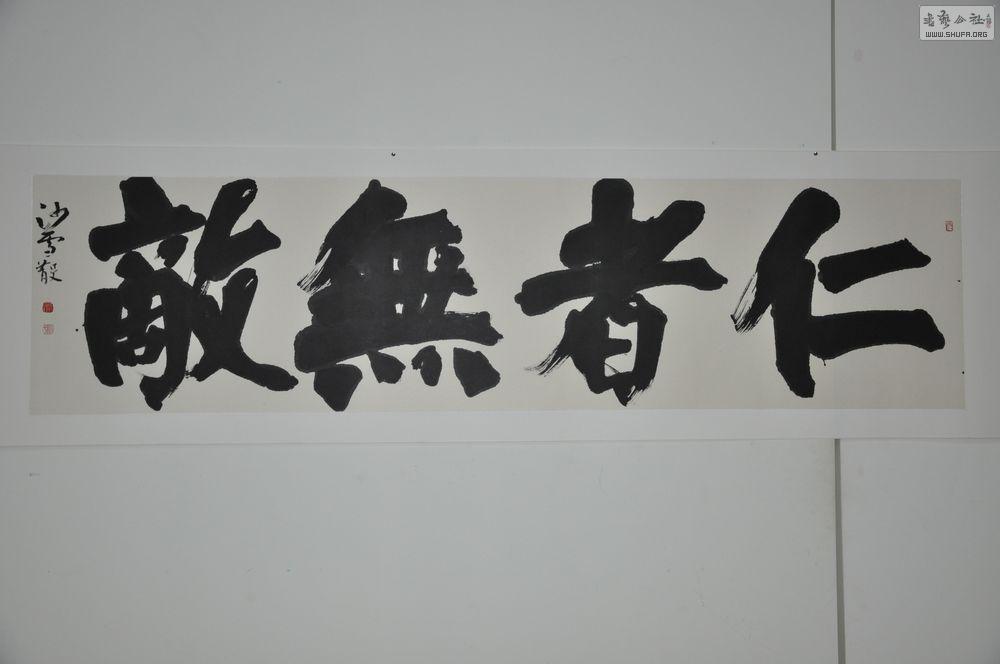 仁者無敵
沙雪凝
書藝公社
WWW.SHUFA.ORG